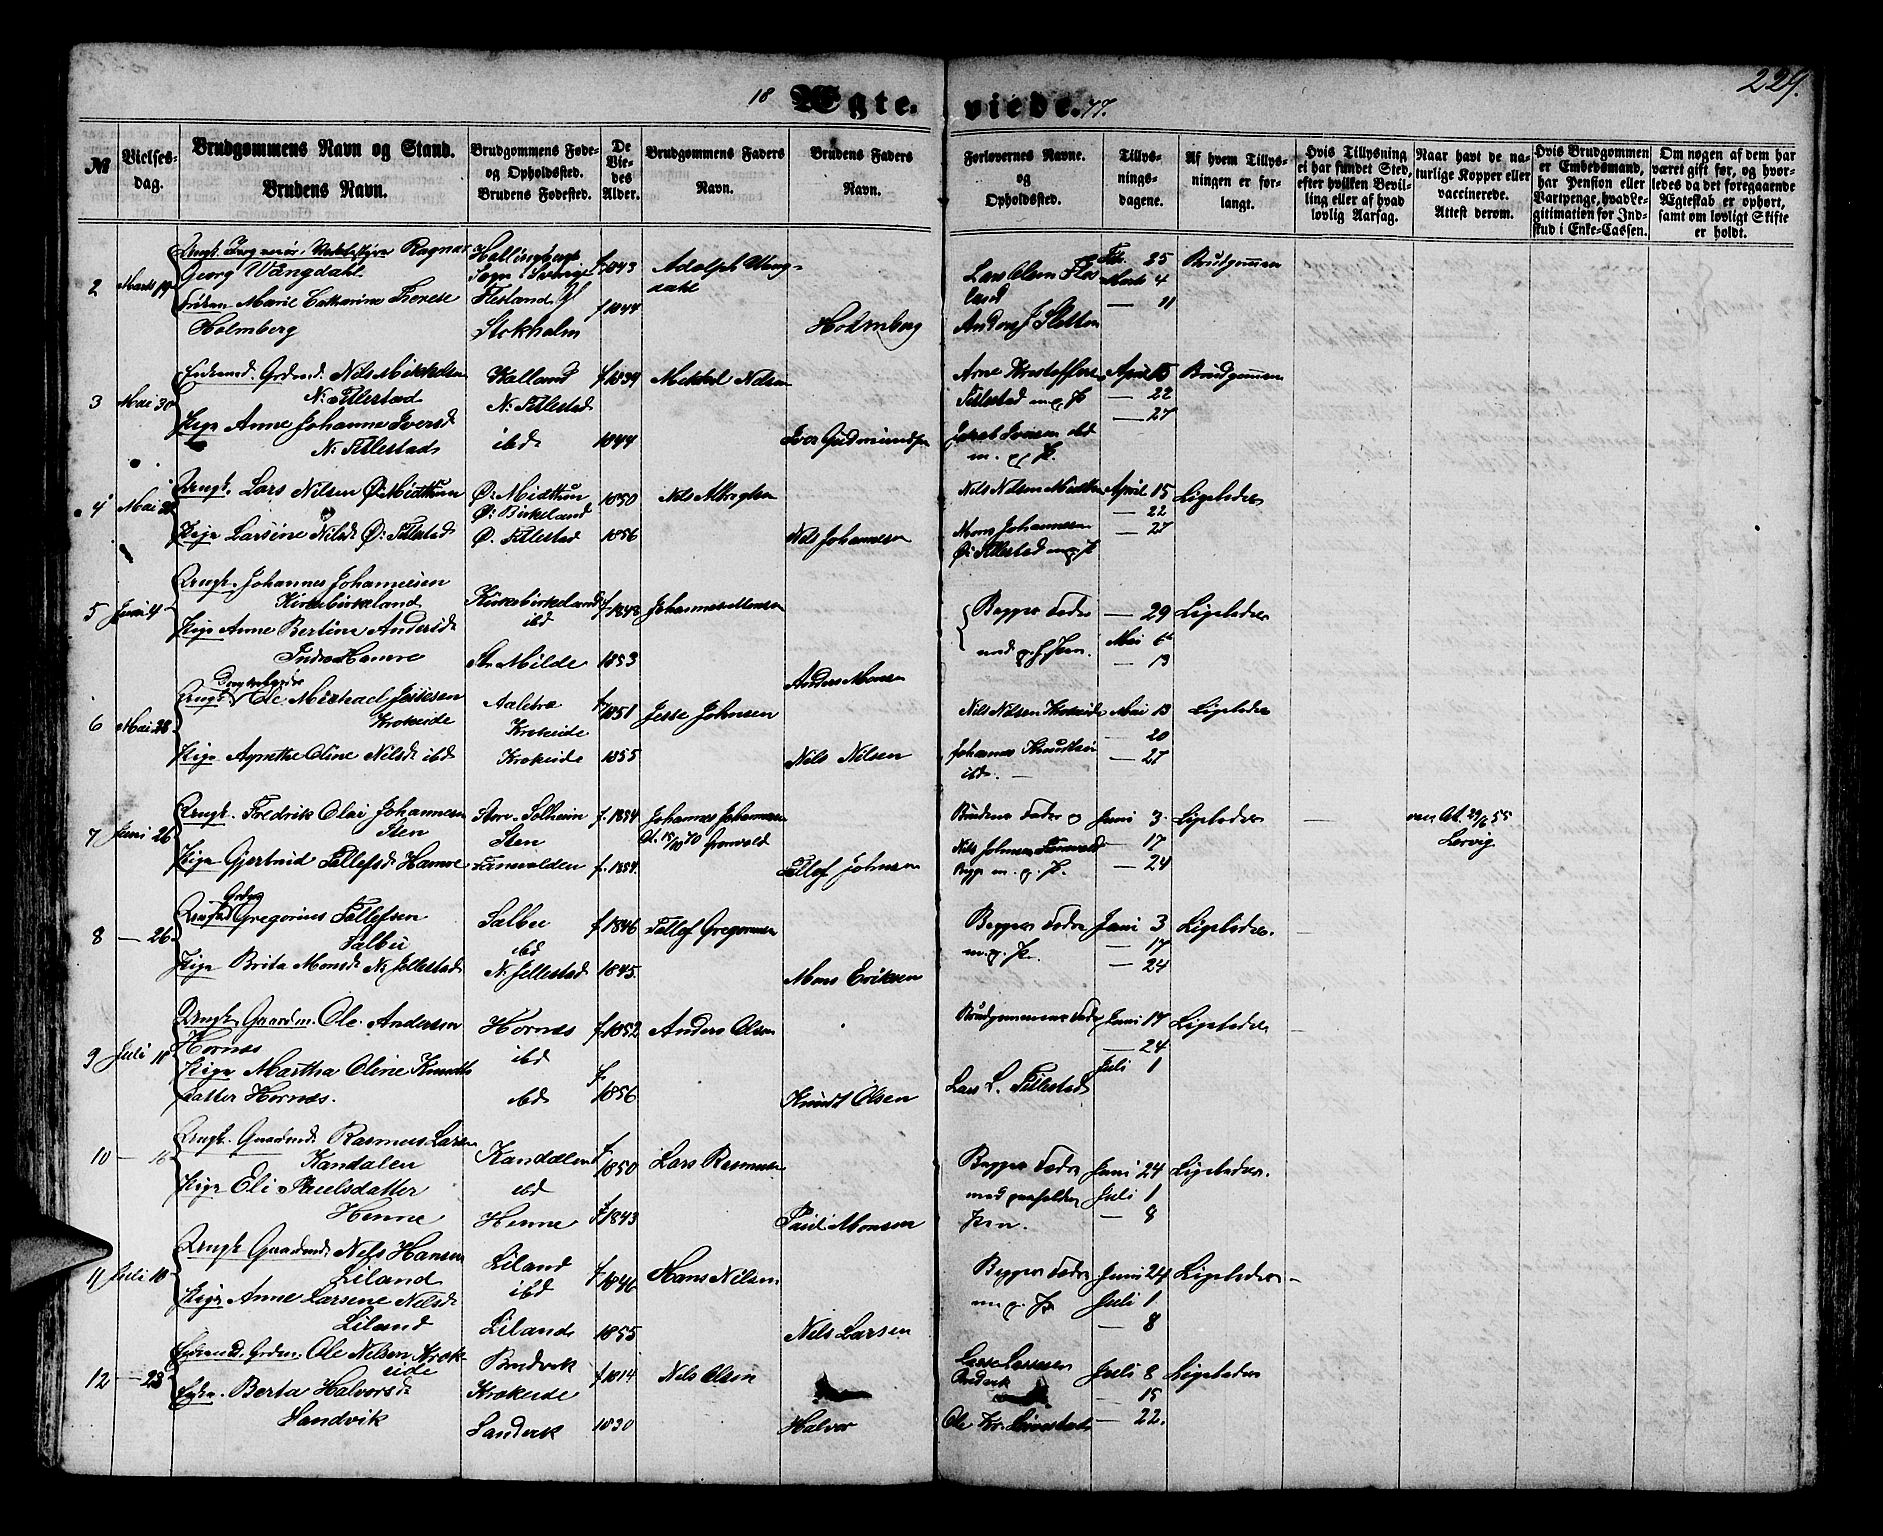 229.
18 Ægte- viede. 77.
№
Vielses-
dag.
Brudgommens Navn og Stand.
Brudens Navn.
Brudgommens Føde-
og Opholdssted.
Brudens Fødested.
De
Vie-
des
Alder.
Brudgommens Faders
Navn.
Brudens Faders
Navn.
Forlovernes Navne.
og
Opholdssted.
Tillys-
nings-
dagene.
Af hvem Tillys-
ningen er for-
langt.
Hvis Tillysning
ei har fundet Sted,
efter hvilken Bevil-
ling eller af hvad
lovlig Aarsag.
Naar havt de na-
turlige Kopper eller
vaccinerede.
Attest derom.
Hvis Brudgommen
er Embedsmand,
har Pension eller
Vartpenge, hvad Le-
gitimation for Ind-
skud i Enke-Cassen.
Om nogen af dem har
været gift før, og hvor-
ledes da det foregaaende
Ægteskab er ophørt,
samt om lovligt Skifte
er holdt.
2 Marts 19
Ragnar
Georg Wångdahl
Marie Catharina Therese
Holmberg
Sogn i Sverige
Flesland
Stokholm
f. 1843
f. 1844
Adolph Wang-
dahl
Holmberg
Lars Olsen Fles
land
Andreas J Sletten
Feb. 25
Marts 4
— 11
Brudgommen
3 Mai 30
Enkemd. Grdmd. Nils Mikkelsen
N: Titlestad
Pige Anne Johanne Iversd
N. Titlestad
Kalland
N: Titlestad
ibd
f. 1839
1844
Mikkel Nilsen
Iver Gudmundsen
Arne Kristoffersen
Titlestad m. g. P.
Jakob Iversen ibd
m. g. P.
April 15
— 22
— 27
Brudgommen
4 Mai 28
Ungk. Lars Nilsen Ø: Midthun
Pige Larsine Nilsd Ø: Titlestad
Ø: Midthun
Ø: Birkeland
Ø. Titlestad
1850
1856
Nils Johannesen
Nils Nilsen Midthun
Mons Johannesen
Ø: Titlestad m. g. P.
April 15
— 22
— 27
Ligeledes
5 Juni 4
Ungk. Johannes Johannesen
Kirkebirkeland
Pige Anne Bertine Andersd
Indre Hamre
Kirkebirkeland
ibd
St. Milde
f. 1848
1853
Anders Monsen
Begges Fædre
med g. P.
— 29
Mai 6
— 13
Ligeledes
6 Mai 28
Ungk. Ole Michael Jessesen
Krokeide
Pige Agnethe Oline Nilsd ibd
Krokeide
Krokeide
1851
1855
Jesse Johnsen
Nils Nilsen
Nils Nilsen Krokeide
Johannes Knudsen
ibd.
Mai 13
— 20
— 27
Ligeledes
7 Juni 26
Ungk. Fredrik Olai Johannesen
Sten
Pige Gjertrud Tellefsd Hamre
Store Solheim
Sten
Fanevalden
f. 1854
f. 1854
Johannes Johannesen
Tellef Johnsen
Brudens Fader og
Nils Johnsen Fanevald
Begge m. g. P.
Juni 3
— 17
— 24
Ligeledes
—
vac. At. 29/6 55
Lervig
8 — 26
Grdm
Gregorius Tellefsen
Salbu
Pige Brita Monsd N. Titlestad
Salbu
ibd
N. Titlestad
f. 1846
1845.
Tellef Gregoriusen
Mons Eriksen
Begges Fædre
m. g. P.
Juni 3
— 17
— 24
Ligeledes.
—
9 Juli 11
Ungk. Gaardm. Ole Andersen
Hornæs
Pige Martha Oline Knuds
datter Hornæs.
Hornæs
ibd
ibd
f. 1852
f.
1856
Anders Olsen
Knudt Olsen
Brudgommens Fader
Lars L. Titlestad
Juni 17
— 24
Juli 1
Ligeledes
—
10 — 16
Ungk. Gaardmd. Rasmus Larsen
Kandalen
Pige Eli Paulsdatter
Henne
Kandalen
ibd
Henne
f.
1850
f. 1843
Lars Rasmusen
Paul Monsen
Begges Fædre
med paafølden
Juni 24
Juli 1
— 8
Ligeledes.
11 Juli 10
Ungk Gaardmd. Nils Hansen
Liland
Pige Anne Larsine Nilsd
Liland
Liland
ibd
Liland
f.
1846
1855
Hans Nilsen
Nils Larsen
Begges Fædre
m. g. P.
Juni 24
Juli 1
— 8
Ligeledes —
12 — 23
Enkemd. Grdm. Ole Nilsen Krok-
eide
Berta Halvorsd
Sandvik
Bradvik
Krokeide
Sandvik
f. 1814
1830
Nils Olsen
Halvor
Lasse Lassesen
Ole Kr.
Juli 8
— 15
— 22.
Ligeledes